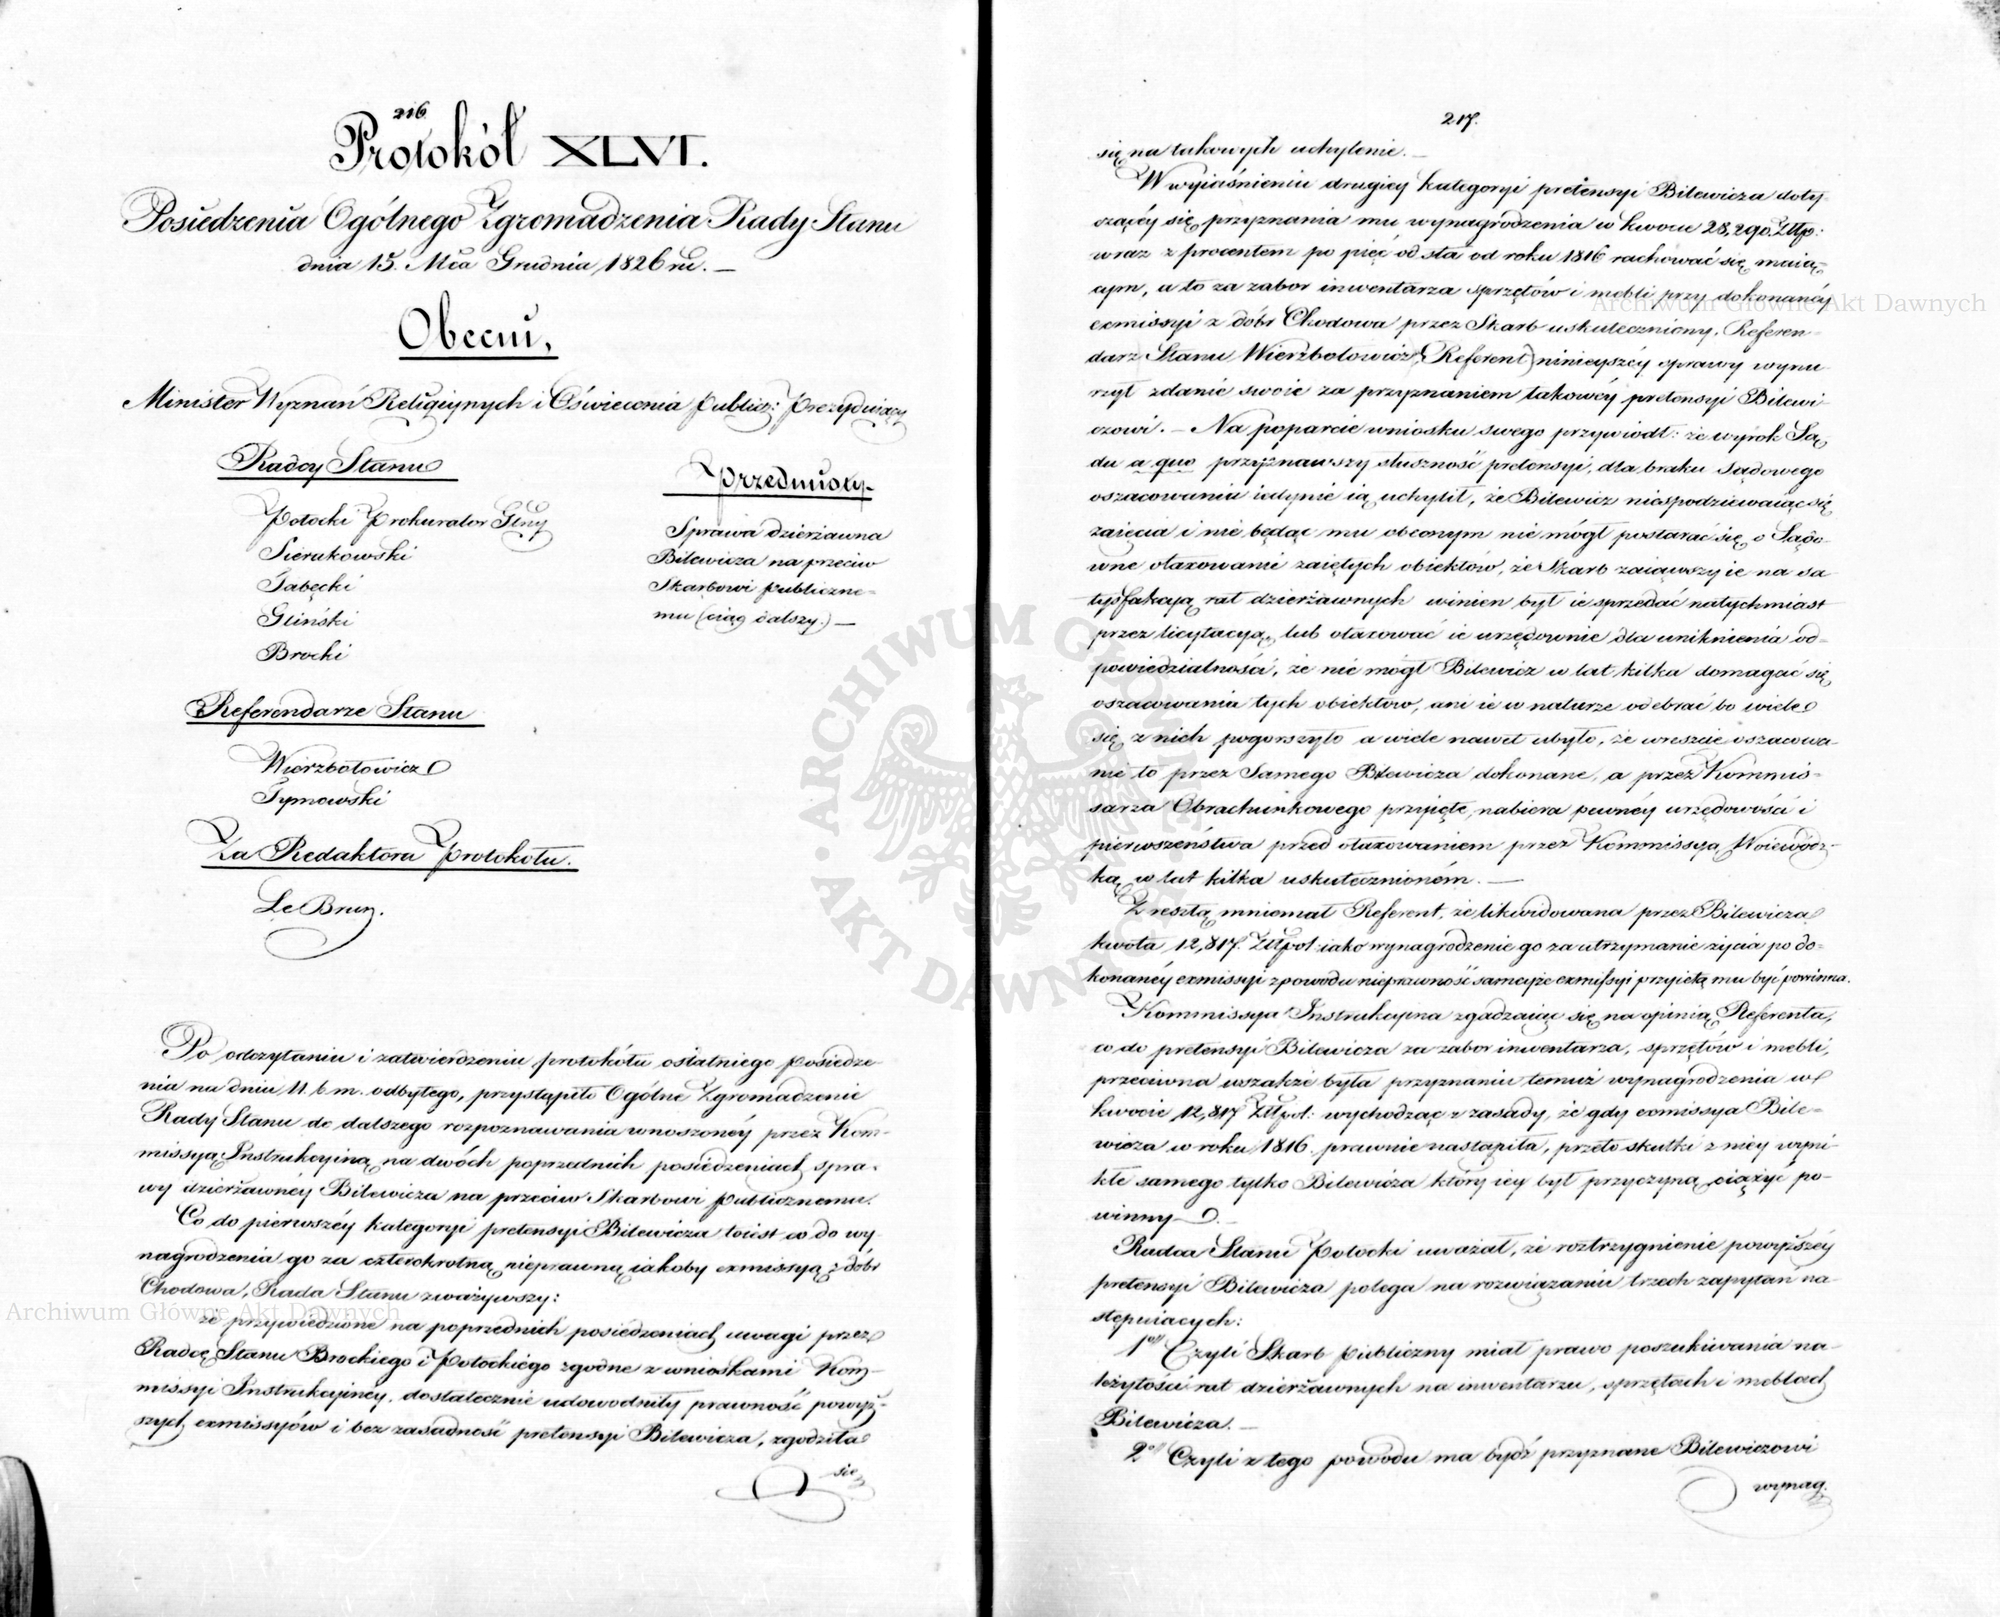 216.
Protokół XLVI.
Posiedzenia Ogólnego Zgromadzenia Rady Stanu
dnia 15. Mca Grudnia 1826 ru. —
Obecni,
Minister Wyznań Religijnych i Oświecenia Publicz: Prezyduiący
Radcy Stanu
Potocki Prokurator Glny
Sierakowski
Gliński
Brocki
Referendarze Stanu
Wierzbołowicz
Tymowski
Za Redaktora Protokołu.
Le Brun.
Przedmioty.
Sprawa dzierżawna
Bilewicza na przeciw
Skarbowi publiczne-
mu (ciąg dalszy.) —
Po odczytaniu i zatwierdzeniu protokółu ostatniego posiedze
nia na dniu 11. b. m. odbytego, przystąpiło Ogólne Zgromadzenie
Rady Stanu do dalszego rozpoznawania wnoszonéy przez Kom-
missyą Instrukcyiną na dwóch poprzednich posiedzeniach spra-
wy dzierżawnéy Bilewicza na przeciw Skarbowi publicznemu.
Co do pierwszéy kategoryi pretensyi Bilewicza toiest co do wy
nagrodzenia go za czterokrotną nieprawną iakoby exmissyą z dóbr
Chodowa, Rada Stanu zważywszy:
że przywiedzione na poprzednich posiedzeniach uwagi przez
Radcę Stanu Brockiego i Potockiego zgodne z wnioskami Kom-
missyi Instrukcyinéy, dostatecznie udowodniły prawność powyż-
szych exmissyów i bez zasadność pretensyi Bilewicza, zgodziła
się
217.
się na takowych uchylenie. —
W wyiaśnieniu drugiey kategoryi pretensyi Bilewicza doty-
czącéy się przyznania mu wynagrodzenia w kwocie 28,290, Złtp:
wraz z procentem po pięć od sta od roku 1816 rachować się maią-
cym, a to za zabor inwentarza sprzętów i mebli przy dokonanéy
exmissyi z dóbr Chodowa przez Skarb uskuteczniony, Referen-
darz Stanu Wierzbołowicz (Referent) ninieyszéy sprawy wynu
rzył zdanie swoie za przyznaniem takowéy pretensyi Bilewi
czowi. — Na poparcie wniosku swego przywiodł: że wyrok Są
du a quo przyznawszy słuszność pretensyi, dla braku Sądowego
oszacowania iedynie ią uchylił, że Bilewicz niespodziewaiąc się
zaięcia i nie będąc mu obecnym nie mógł postarać się o Sądo-
wne otaxowanie zaiętych obiektów, że Skarb zaiąwszy ie na sa
tysfakcyą rat dzierżawnych winien był ie sprzedać natychmiast
przez licytacyą, lub otaxować ie urzędownie dla uniknienia od-
powiedzialności, że nie mógł Bilewicz w lat kilka domagać się
oszacowania tych obiektów, ani ie w naturze odebrać bo wiele
się z nich pogorszyło a wiele nawet ubyło, że wreszcie oszacowa-
nie to przez Samego Bilewicza dokonane, a przez Kommis-
sarza Obrachunkowego przyięte, nabiera pewnéy urzędowości i
pierwszeństwa przed otaxowaniem przez Kommissyą Woiewódz-
ką w lat kilka uskutecznioném. —
Z resztą mniemał Referent, że likwidowana przez Bilewicza
kwota 12,817. Złtpol: iako wynagrodzenie go za utrzymanie życia po do-
konanéy exmissyi z powodu nieprawność samejże exmissyi przyietą mu być powinna.
Kommissya Instrukcyina zgadzaiąc się na opinią Referenta,
co do pretensyi Bilewicza za zabor inwentarza, sprzętów i mebli,
przeciwna wszakże była przyznaniu temuż wynagrodzenia w
kwocie 12,817 Złtpol: wychodząc z zasady, że gdy exmissya Bile-
wicza w roku 1816. prawnie nastąpiła, przeto skutki z niey wyni
kłe samego tylko Bilewicza który iey był przyczyną ciążyć po-
winny —
Radca Stanu Potocki uważał, że roztrzygnienie powyższéy
pretensyi Bilewicza polega na rozwiązaniu trzech zapytań na-
stępuiących:
1º Czyli Skarb publiczny miał prawo poszukiwania na-
leżytości rat dzierżawnych na inwentarzu, sprzętach i meblach
Bilewicza. —
2º Czyli z tego powodu ma bydź przyznane Bilewiczowi
wynag.
Archiwum Główne Akt Dawnych
Archiwum Główne Akt Dawnych